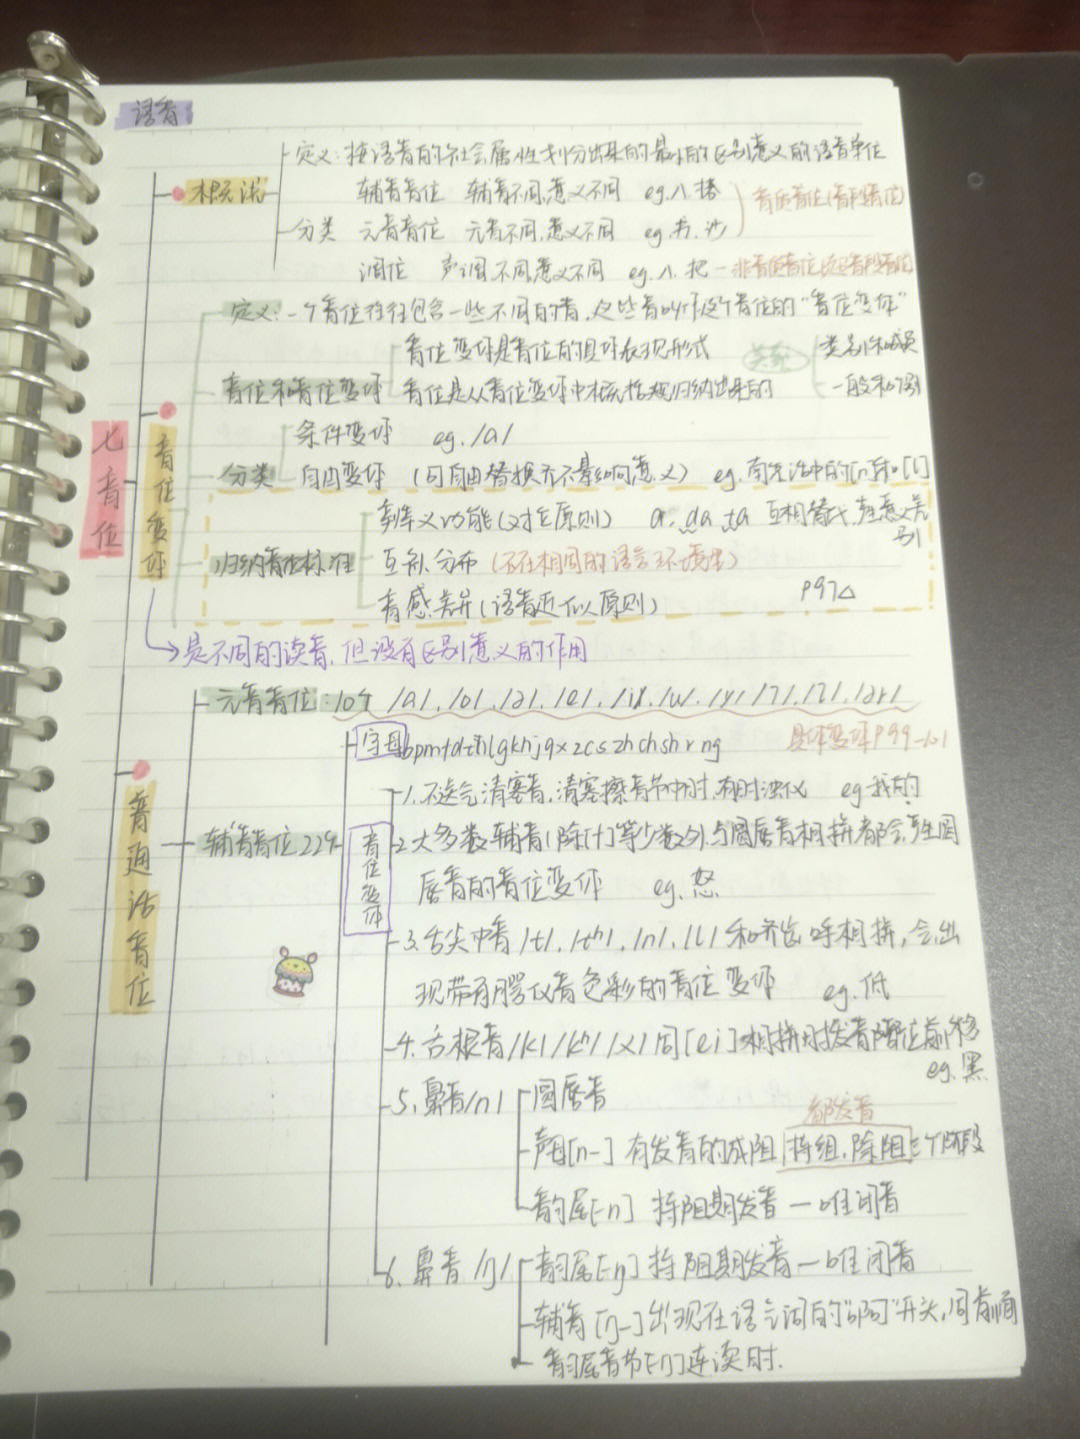 语音
定义:按语音的社会属性划分出来的最小的区别意义的语音单位
概说
辅音音位 辅音不同,意义不同 eg.八.搭
音质音位(音段音位)
分类 元音音位 元音不同,意义不同 eg.书.沙
调位 声调不同,意义不同 eg.八.把 — 非音质音位(超音段音位)
定义:一个音位往往包含一些不同的音,这些音叫作这个音位的“音位变体”
音位变体是音位的具体表现形式
关系 类别和成员
音位和音位变体 音位是从音位变体中概括归纳出来的
一般和个别
七音位
音位变体
条件变体 eg./a/
分类 自由变体 (可自由替换而不影响意义) eg.南京话中的[n]和[l]
辨义功能(对立原则) a. da ta 互相替代,产生意义差别
归纳音位标准 互补分布(不在相同的语言环境里)
音感差异(语音近似原则) P97△
是不同的读音,但没有区别意义的作用
元音音位:10个 /a/./o/./ə/./e/./i/./u/./y/./ɿ/./ʅ/./ər/
字母 bpmfdtnlgkhjqxzcszhchshrng
具体变体P99-101
普通话音位
1.不送气清塞音,清塞擦音节中时,有时浊化 eg.我的
辅音音位22个 音位变体
2.大多数辅音(除[f]等少数外)与圆唇音相拼都会产生圆
唇音的音位变体 eg.怒
3.舌尖中音/t/./tʰ/./n/./l/和齐齿呼相拼,会出
现带有腭化音色彩的音位变体 eg.低
4.舌根音/k/ /kʰ/ /x/同[ei]相拼时发音部位前移
eg.黑
5.鼻音/n/ 圆唇音
都发音
声母[n-] 有发音的成阻,持阻,除阻三个阶段
韵尾[-n] 持阻期发音 — 唯闭音
6.鼻音/ŋ/ 韵尾[-ŋ] 持阻期发音 — 唯闭音
辅音[ŋ-]出现在语气词的“啊”开头,同前面
韵尾音节[-ŋ]连读时.